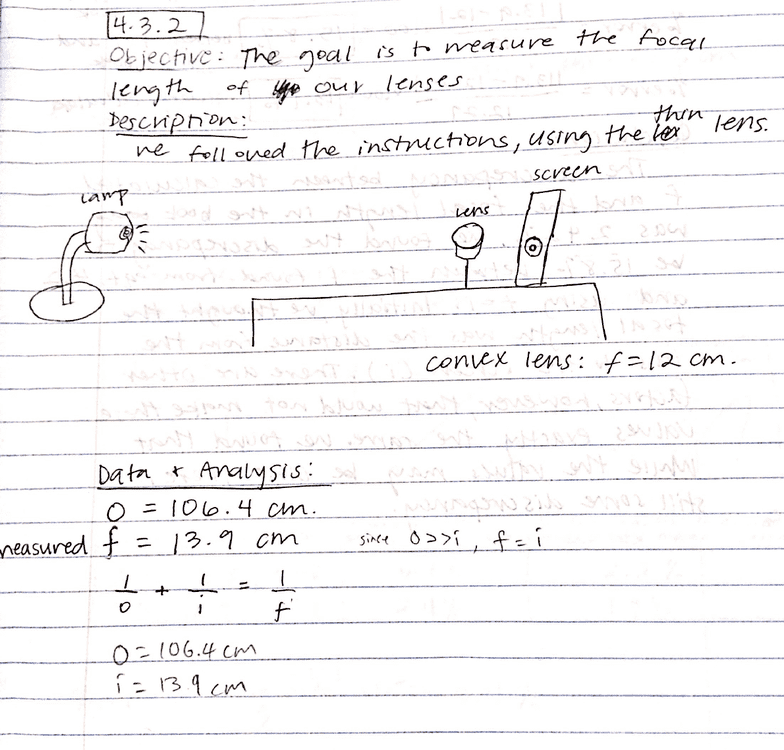 4.3.2
Objective: The goal is to measure the focal
length of our lenses
Description:
we followed the instructions, using the thin lens.
lamp
lens
screen
convex lens: f=12 cm.
Data + Analysis:
O = 106.4 cm.
measured f = 13.9 cm since O>>i, f=i
1/o + 1/i = 1/f
O=106.4 cm
i= 13.9 cm